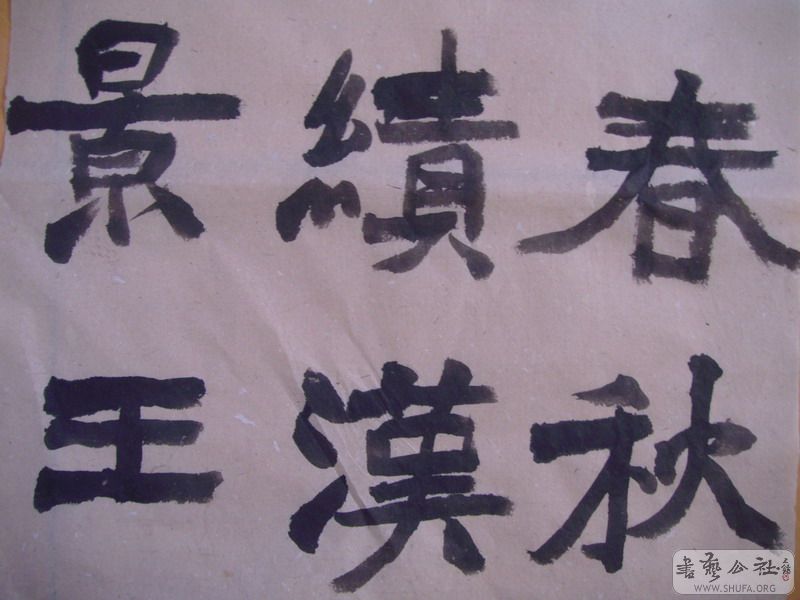 春秋
績漢
景王
書藝公社
WWW.SHUFA.ORG